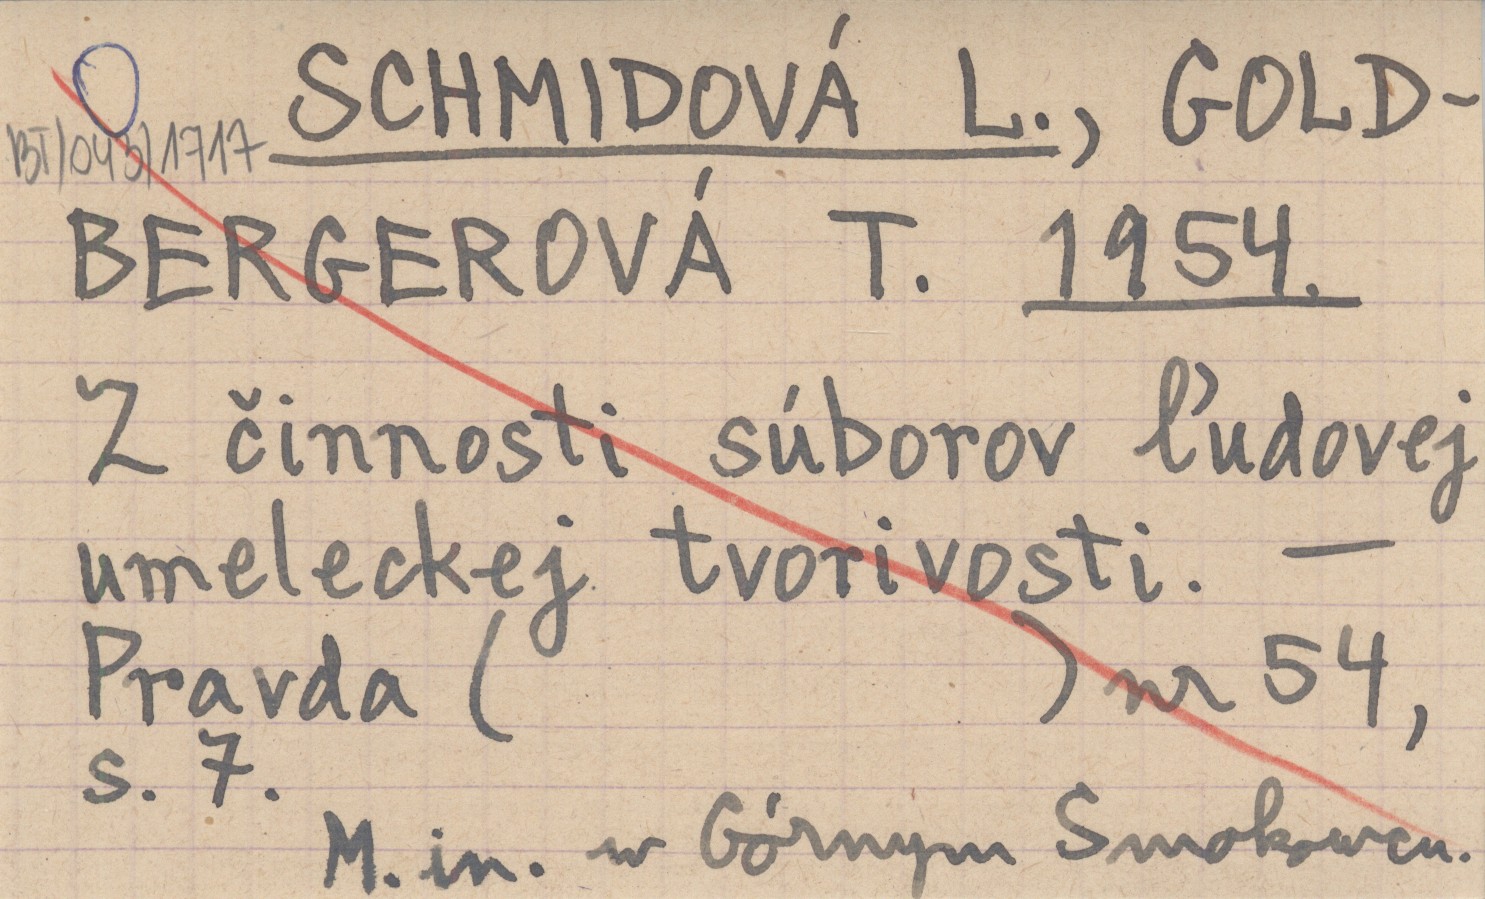 SCHMIDOVÁ L., GOLD-
BT/043/1717
BERGEROVÁ T. 1954.
Z činnosti súborov ľudovej
umeleckej tvorivosti. —
Pravda ( ) nr 54,
s. 7.
M. in. w Górnym Smokowcu.